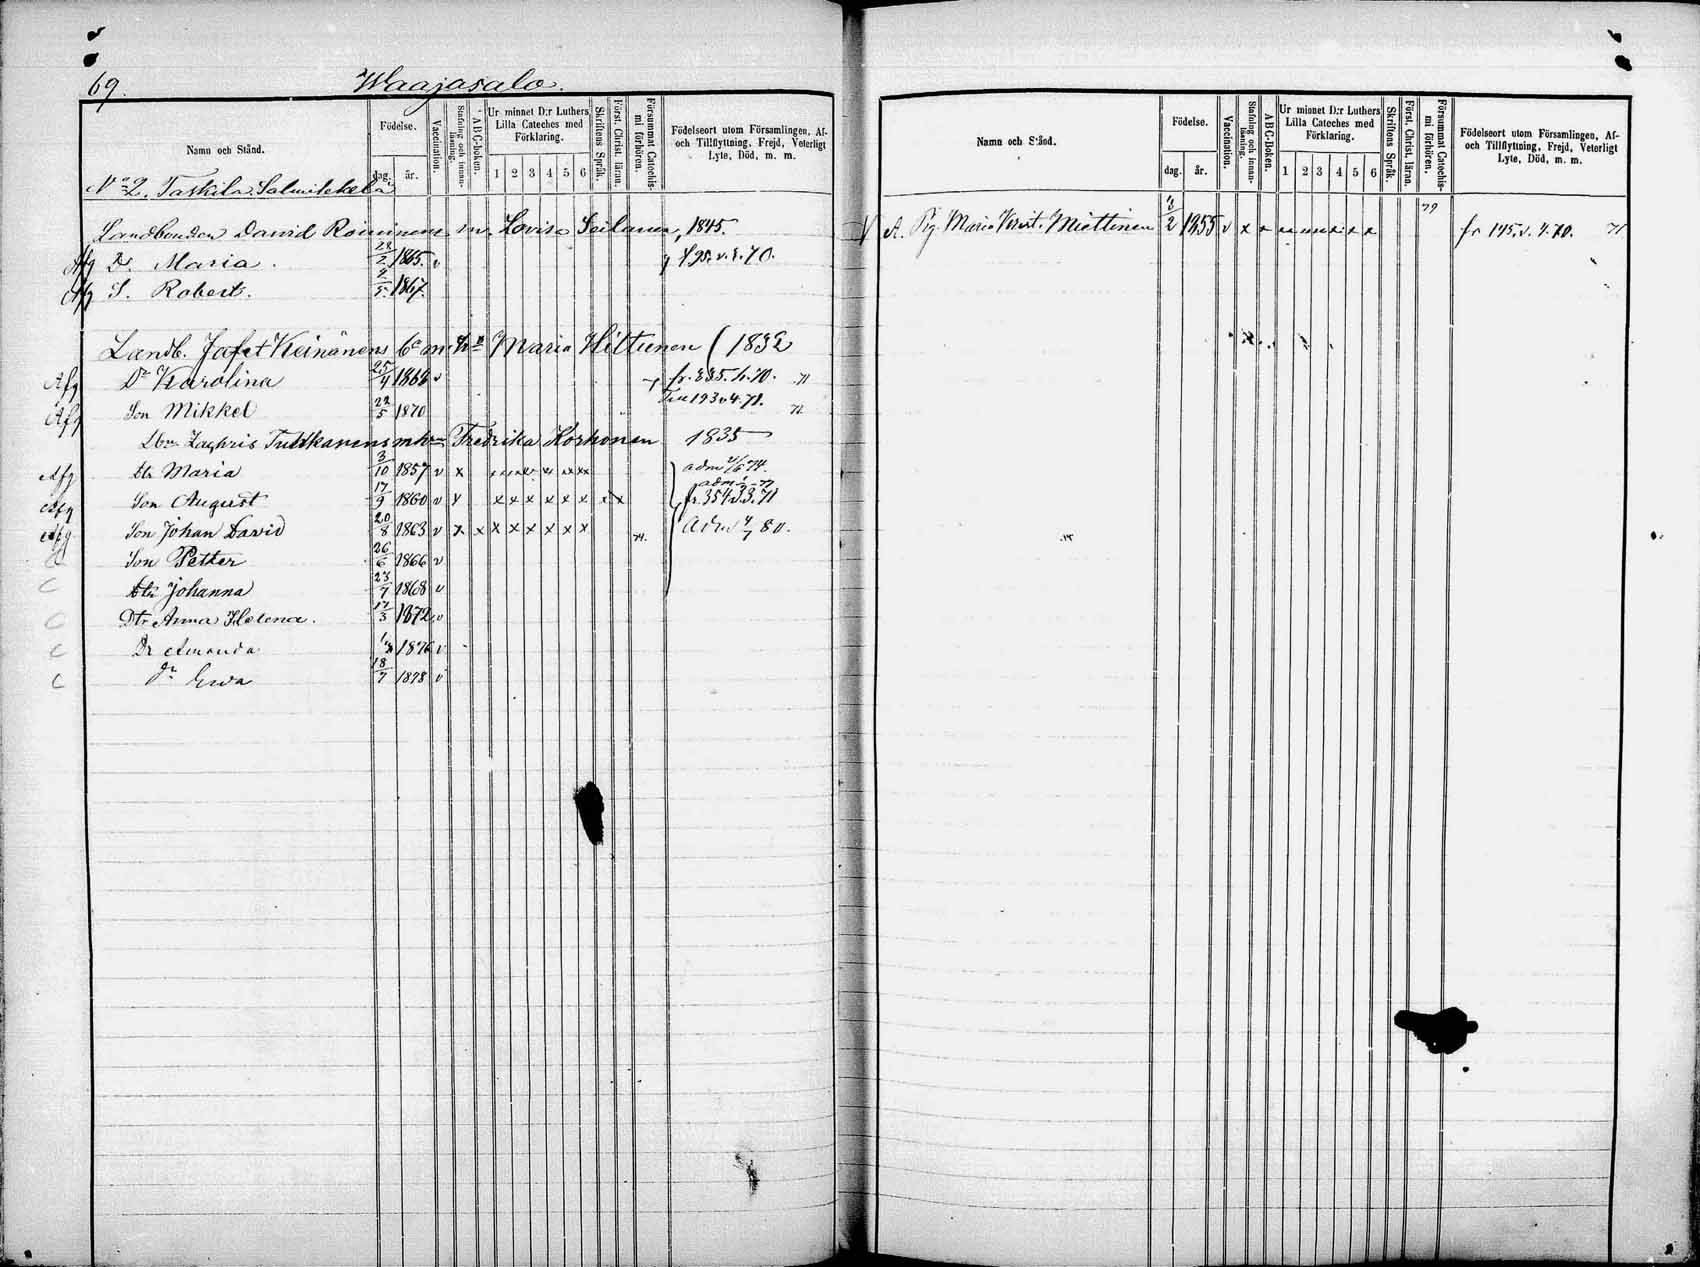 69.
Waajasalo.
Namn och Stånd.
Födelse.
dag. år.
Vaccination.
Stafning och innan-läsning.
ABC-Boken.
Ur minnet D:r Luthers Lilla Cateches med Förklaring.
1 2 3 4 5 6
Skriftens Språk.
Först. Christ. läran.
Försummat Catechis-mi förhören.
Födelseort utom Församlingen, Af- och Tillflyttning, Frejd, Veterligt Lyte, Död, m. m.
No 2. Taskila
Landbonden David Roininens m. Lovisa Seilanen, 1845.
Afg D. Maria. 28/2 1865. v f 495. v. 4. 70.
Afg S. Robert. 4/5 1867.
Landb. Jafet Keinänens Maria Hiltunen (1832
Afg Dr Karolina 25/4 1868 v fr. 335. h. 70. 71
Afg Son Mikkel 22/5 1870 193 v 4. 71. 72
Zachris Tuhkanens m hu Fredrika Korhonen 1835
Afg Dtr Maria 3/10 1857 v x x x x x x x adm 74.
Afg Son August 17/9 1860 v x x x x x x x x x fr. 354 v 3. 71
Afg Son Johan David 20/8 1863 v x x x x x x x x 74. Adm 4/7 80.
C Son Petter 26/6 1866 v
C Dtr Johanna 23/7 1868 v
C Dtr Anna Helena. 17/3 1872 v
C Dr Amanda 1876 v
C Dr Ewa 18/7 1878 v
Namn och Stånd.
Födelse.
dag. år.
Vaccination.
Stafning och innan-läsning.
ABC-Boken.
Ur minnet D:r Luthers Lilla Cateches med Förklaring.
1 2 3 4 5 6
Skriftens Språk.
Först. Christ. läran.
Försummat Catechis-mi förhören.
Födelseort utom Församlingen, Af- och Tillflyttning, Frejd, Veterligt Lyte, Död, m. m.
V A. Pig. Maria Krist. Miettinen 3/2 1855 v x x x x x x x x 79 fr 195. v. 4. 70. 71